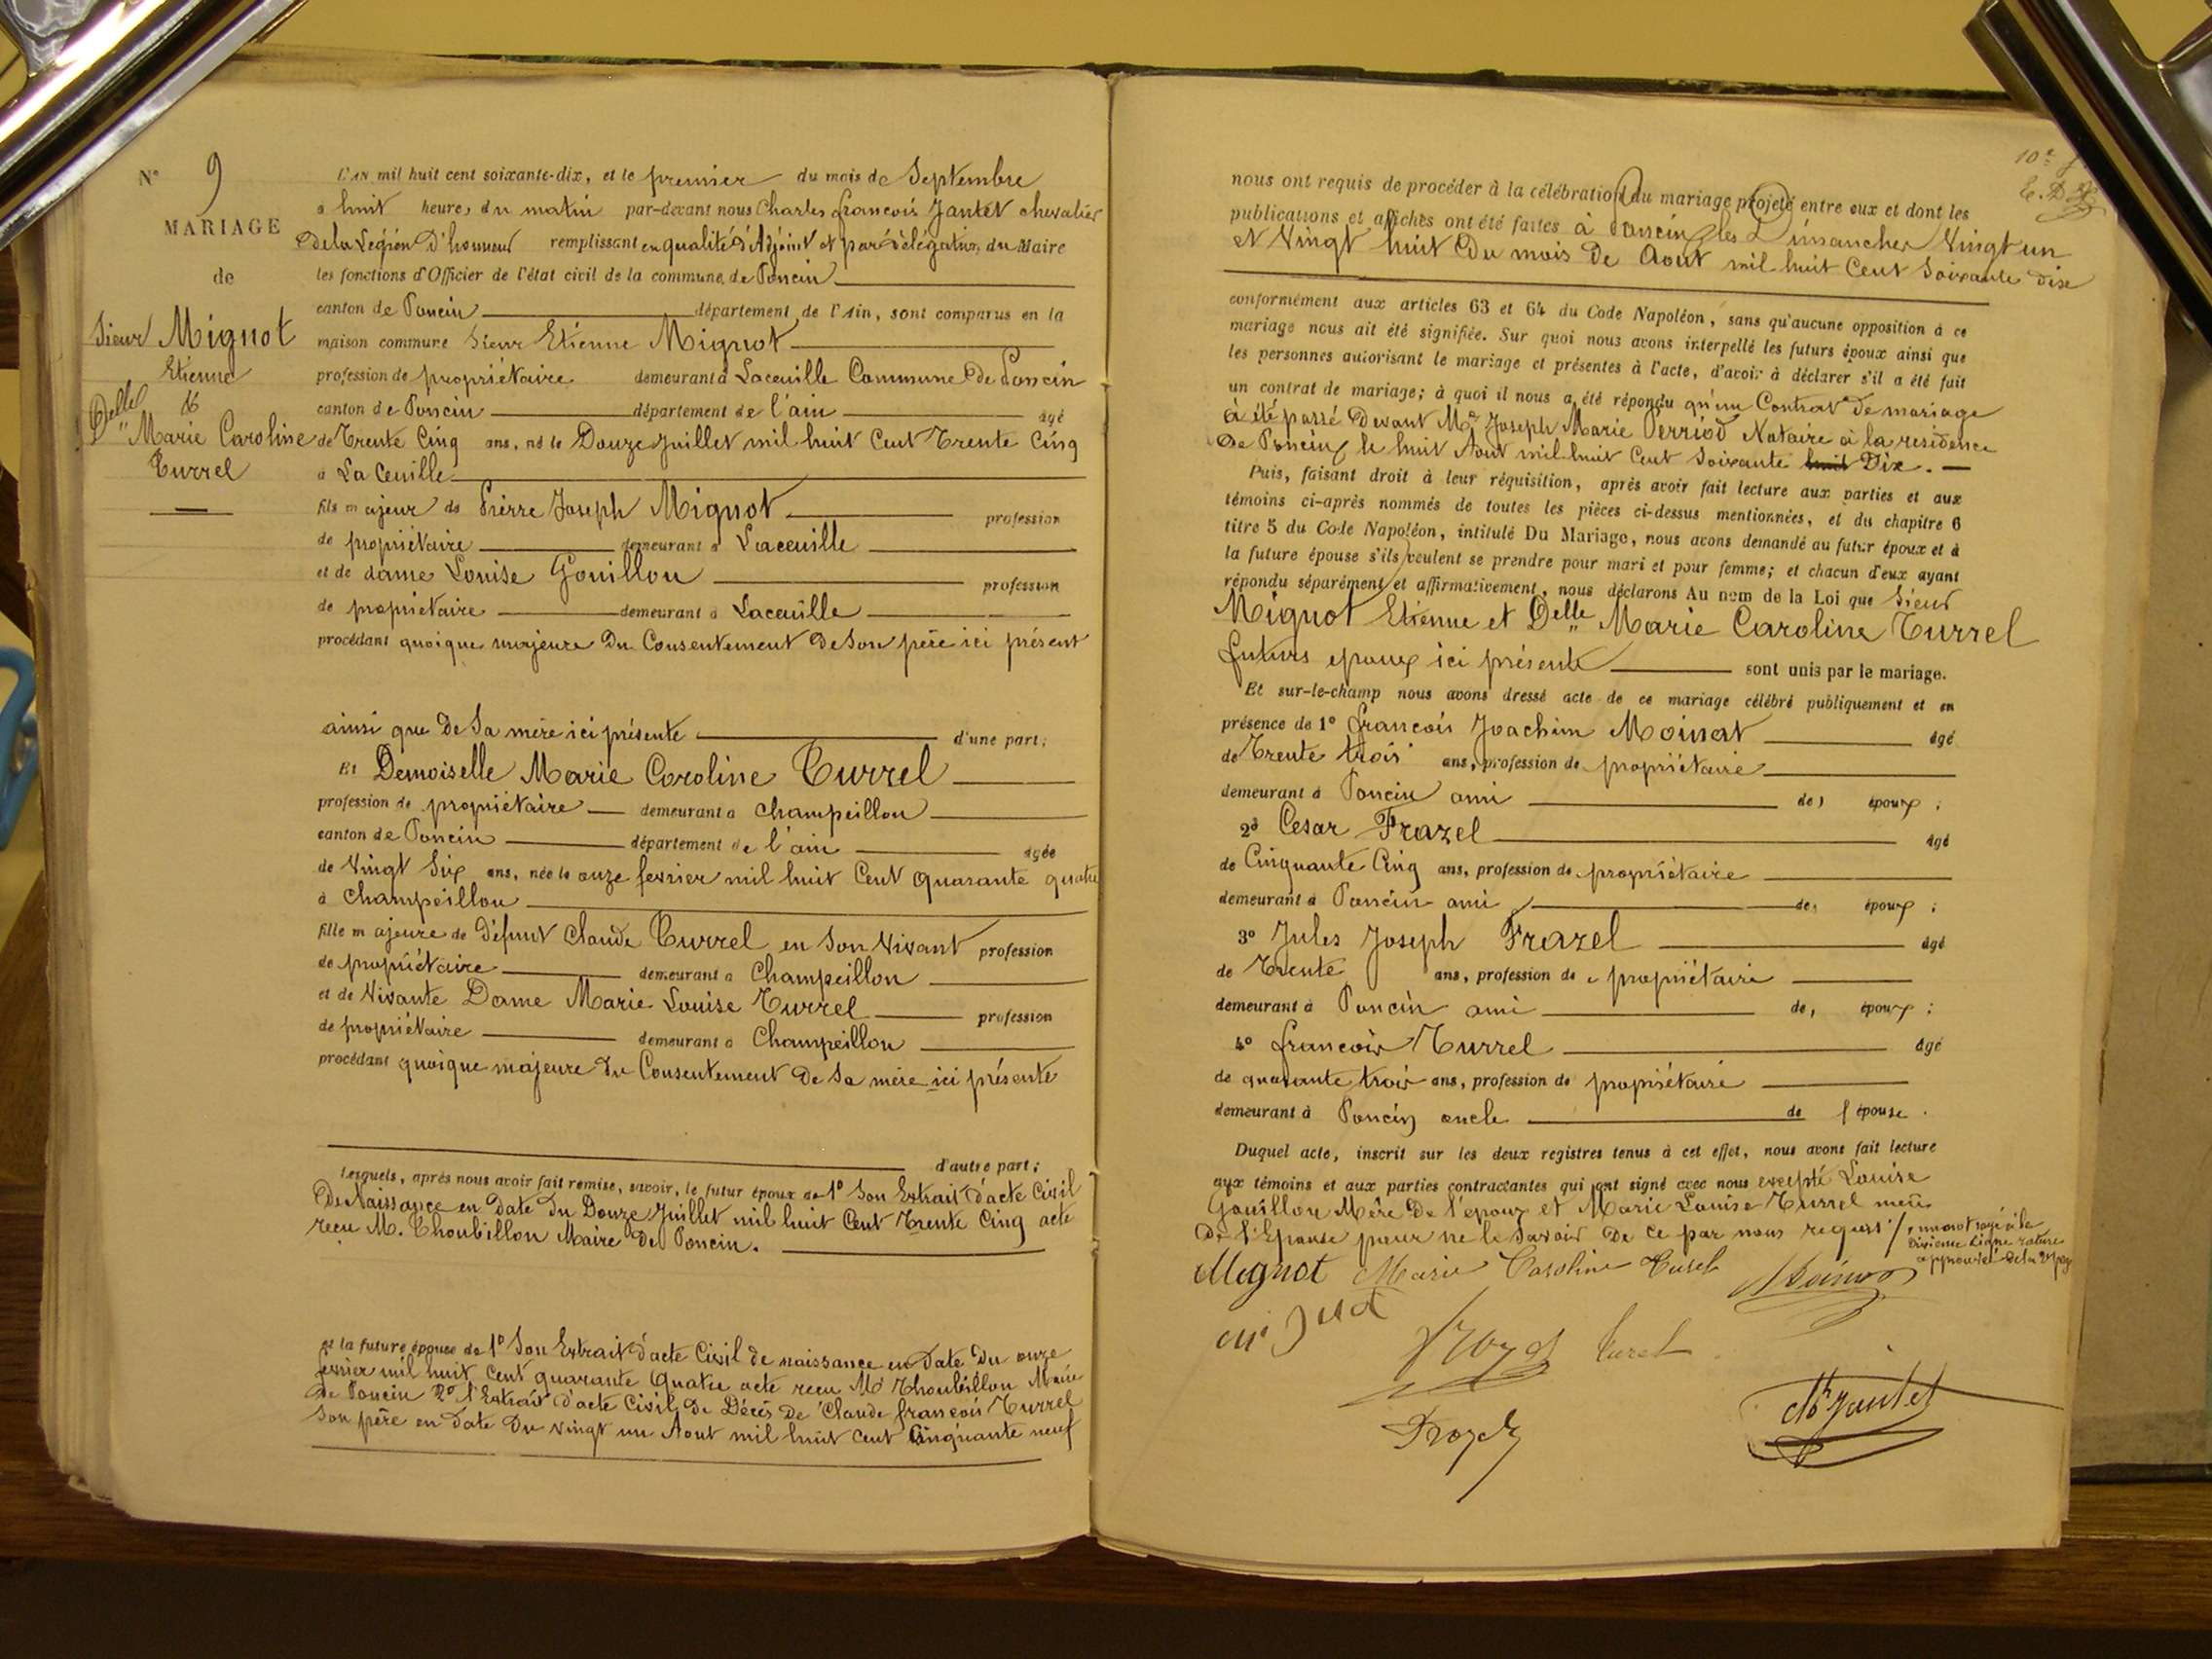 N° 9
MARIAGE
de
Sieur Mignot
Etienne
&
Delle Marie Caroline
Turrel
L'AN mil huit cent soixante-dix, et le premier du mois de Septembre
à huit heures du matin par-devant nous Charles francois Jantet chevalier
de la Legion d'honneur remplissant en qualité d'Adjoint et par délégation du Maire
les fonctions d'Officier de l'état civil de la commune de Poncin
canton de Poncin département de l'Ain, sont comparus en la
maison commune Sieur Etienne Mignot
profession de propriétaire demeurant à Laceuille Commune de Poncin
canton de Poncin département de l'ain âgé
de Trente Cinq ans, né le Douze juillet mil huit Cent Trente Cinq
à La Ceuille
fils majeur de Pierre Joseph Mignot profession
de propriétaire demeurant à Laceuille
et de dame Louise Gouillon profession
de propriétaire demeurant à Laceuille
procédant quoique majeure Du Consentement De Son père ici présent
ainsi que De Sa mère ici présente d'une part;
Et Demoiselle Marie Caroline Turrel
profession de propriétaire demeurant à Champeillon
canton de Poncin département de l'ain âgée
de Vingt Six ans, née le onze fevrier mil huit Cent Quarante quatre
à Champeillon
fille majeure de Défunt Claude Turrel en Son Vivant profession
de propriétaire demeurant à Champeillon
et de Vivante Dame Marie Louise Turrel profession
de propriétaire demeurant à Champeillon
procédant quoique majeure Du Consentement De Sa mère ici présente
d'autre part;
Lesquels, après nous avoir fait remise, savoir, le futur époux de 1° Son Extrait d'acte Civil
De Naissance en Date Du Douze Juillet mil huit Cent Trente Cinq acte
reçu M. Thoubillon Maire De Poncin.
et la future épouse de 1° Son Extrait d'acte Civil de naissance en Date Du onze
fevrier mil huit Cent quarante Quatre acte reçu Mr Thoubillon Maire
De Poncin 2° l'Extrait d'acte Civil De Décès De Claude francois Turrel
Son père en Date Du vingt un Aout mil huit Cent Cinquante neuf
nous ont requis de procéder à la célébration du mariage projeté entre eux et dont les
publications et affiches ont été faites à Poncin les Dimanches Vingt un
et Vingt huit Du mois De Aout mil huit Cent Soixante dix
conformément aux articles 63 et 64 du Code Napoléon, sans qu'aucune opposition à ce
mariage nous ait été signifiée. Sur quoi nous avons interpellé les futurs époux ainsi que
les personnes autorisant le mariage et présentes à l'acte, d'avoir à déclarer s'il a été fait
un contrat de mariage; à quoi il nous a été répondu qu'un Contrat de mariage
à été passé Devant Me Joseph Marie Perriod Notaire à la residence
De Poncin le huit Aout mil huit Cent Soixante huit Dix.
Puis, faisant droit à leur réquisition, après avoir fait lecture aux parties et aux
témoins ci-après nommés de toutes les pièces ci-dessus mentionnées, et du chapitre 6
titre 5 du Code Napoléon, intitulé Du Mariage, nous avons demandé au futur époux et à
la future épouse s'ils veulent se prendre pour mari et pour femme; et chacun d'eux ayant
répondu séparément et affirmativement, nous déclarons Au nom de la Loi que Sieur
Mignot Etienne et Delle Marie Caroline Turrel
futurs epoux ici présents sont unis par le mariage.
Et sur-le-champ nous avons dressé acte de ce mariage célébré publiquement et en
présence de 1° francois Joachim Moinat âgé
de Trente trois ans, profession de propriétaire
demeurant à Poncin ami des époux;
2° Cesar Frazel âgé
de Cinquante Cinq ans, profession de propriétaire
demeurant à Poncin ami des époux;
3° Jules Joseph Frazel âgé
de Trente ans, profession de propriétaire
demeurant à Poncin ami des époux;
4° francois Turrel âgé
de quarante trois ans, profession de propriétaire
demeurant à Poncin oncle de l'épouse.
Duquel acte, inscrit sur les deux registres tenus à cet effet, nous avons fait lecture
aux témoins et aux parties contractantes qui ont signé avec nous excepté Louise
Gouillon Mère De l'époux et Marie Louise Turrel mère
De l'Epouse pour ne le Savoir De ce par nous requis /. un mot rayé à la
Dixieme Ligne rature
approuvée De la 2e page
Mignot Marie Caroline Turel
Turel
Ch. Jantet